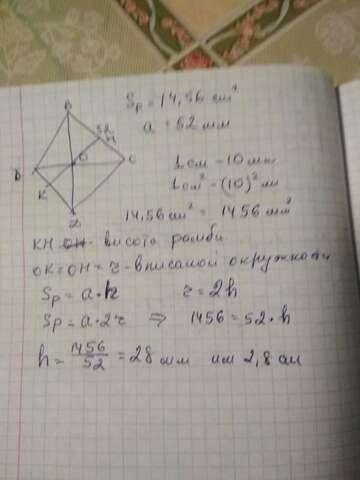 B
52
H
O
C
K
D
Sp = 14,56 cm²
a = 52 мм
1 см - 10 мм
1 см² - (10)² м
14,56 см² = 1456 мм²
KH - висота ромби
OK = OH = r - вписаной окружности
Sp = a·h r = 2h
Sp = a·2r ⇒ 1456 = 52·h
h = 1456/52 = 28 мм или 2,8 см